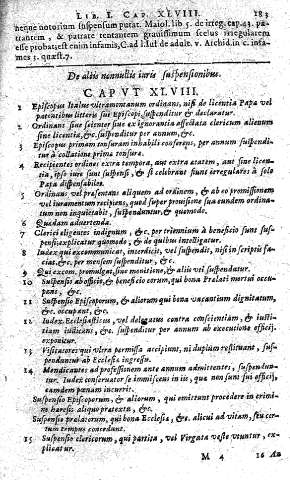 LIB. I. CAP. XLVIII. 183
neque notorium suspensum putat. Maiol. lib. 5. de irreg. cap. 43. pa-
tantem, & patrate tentantem gravissimum scelus irregularem
esse probat, est enim infamis, C. ad l. Iul. de adult. v. Archid. in c. infa-
mes 3. quæst. 7.
De aliis nonnullis iuris suspensionibus.
CAPVT XLVIII.
1 Episcopus Italus vltramontanum ordinans, nisi de licentia Papa vel
parentibus litteris sui Episcopi, suspenditur & declaratur.
2 Ordinans sine scienter siue ex ignorantia affectata clericum alienum
sine licentia, &c. suspenditur per annum, &c.
3 Episcopus primam tonsuram inhabili conferens, per annum suspendi-
tur à collatione prima tonsura.
4 Recipientes ordines extra tempora, aut extra aetatem, aut sine licen-
tia, ipso iure sunt suspensi, & si celebrant fiunt irregulares à solo
Papa dispensabiles.
5 Ordinans vel præsentans aliquem ad ordinem, & ab eo promissionem
vel iuramentum recipiens, quod super prouisione sua eundem ordina-
tum non inquietabit, suspenduntur, & quomodo.
6 Quædam aduertenda.
7 Clerici eligentes indignum, &c. per triennium à beneficio sunt sus-
pensi; explicatur quomodo, & de quibus intelligatur.
8 Index qui excommunicat, interdicit, vel suspendit, nisi in scriptis fa-
ciat, &c. per mensem suspenditur, &c.
9 Qui excom. promulgat, siue monitione, & aliis vel suspendatur.
10 Suspensio ab officio, & beneficio eorum, qui bona Prælati mortui occu-
pant, &c.
11 Suspensio Episcoporum, & aliorum qui bona vacantium dignitatum,
&c. occupant, &c.
12 Iudex Ecclesiasticus, vel delegatus contra conscientiam, & iusti-
tiam iudicans, &c. suspenditur per annum ab executione officij.
exponitur.
13 Visitatores qui vltra permissa accipiunt, ni duplum restituant, sus-
penduntur ab Ecclesia ingressu.
14 Mendicantes ad professionem ante annum admittentes, suspendun-
tur. Iudex conseruator se immiscens in iis, qua non sunt sui officij,
eandem pœnam incurrit.
Suspensio Episcoporum, & aliorum, qui omittunt procedere in crimi-
ne hæresis aliquo prætextu, &c.
Suspensio prælatorum, qui bona Ecclesia, &c. alicui ad vitam, seu cer-
tum tempus concedunt.
15 Suspensio clericorum, qui partita, vel Virgata veste vtuntur, ex-
plicatur.
M 4 16 An